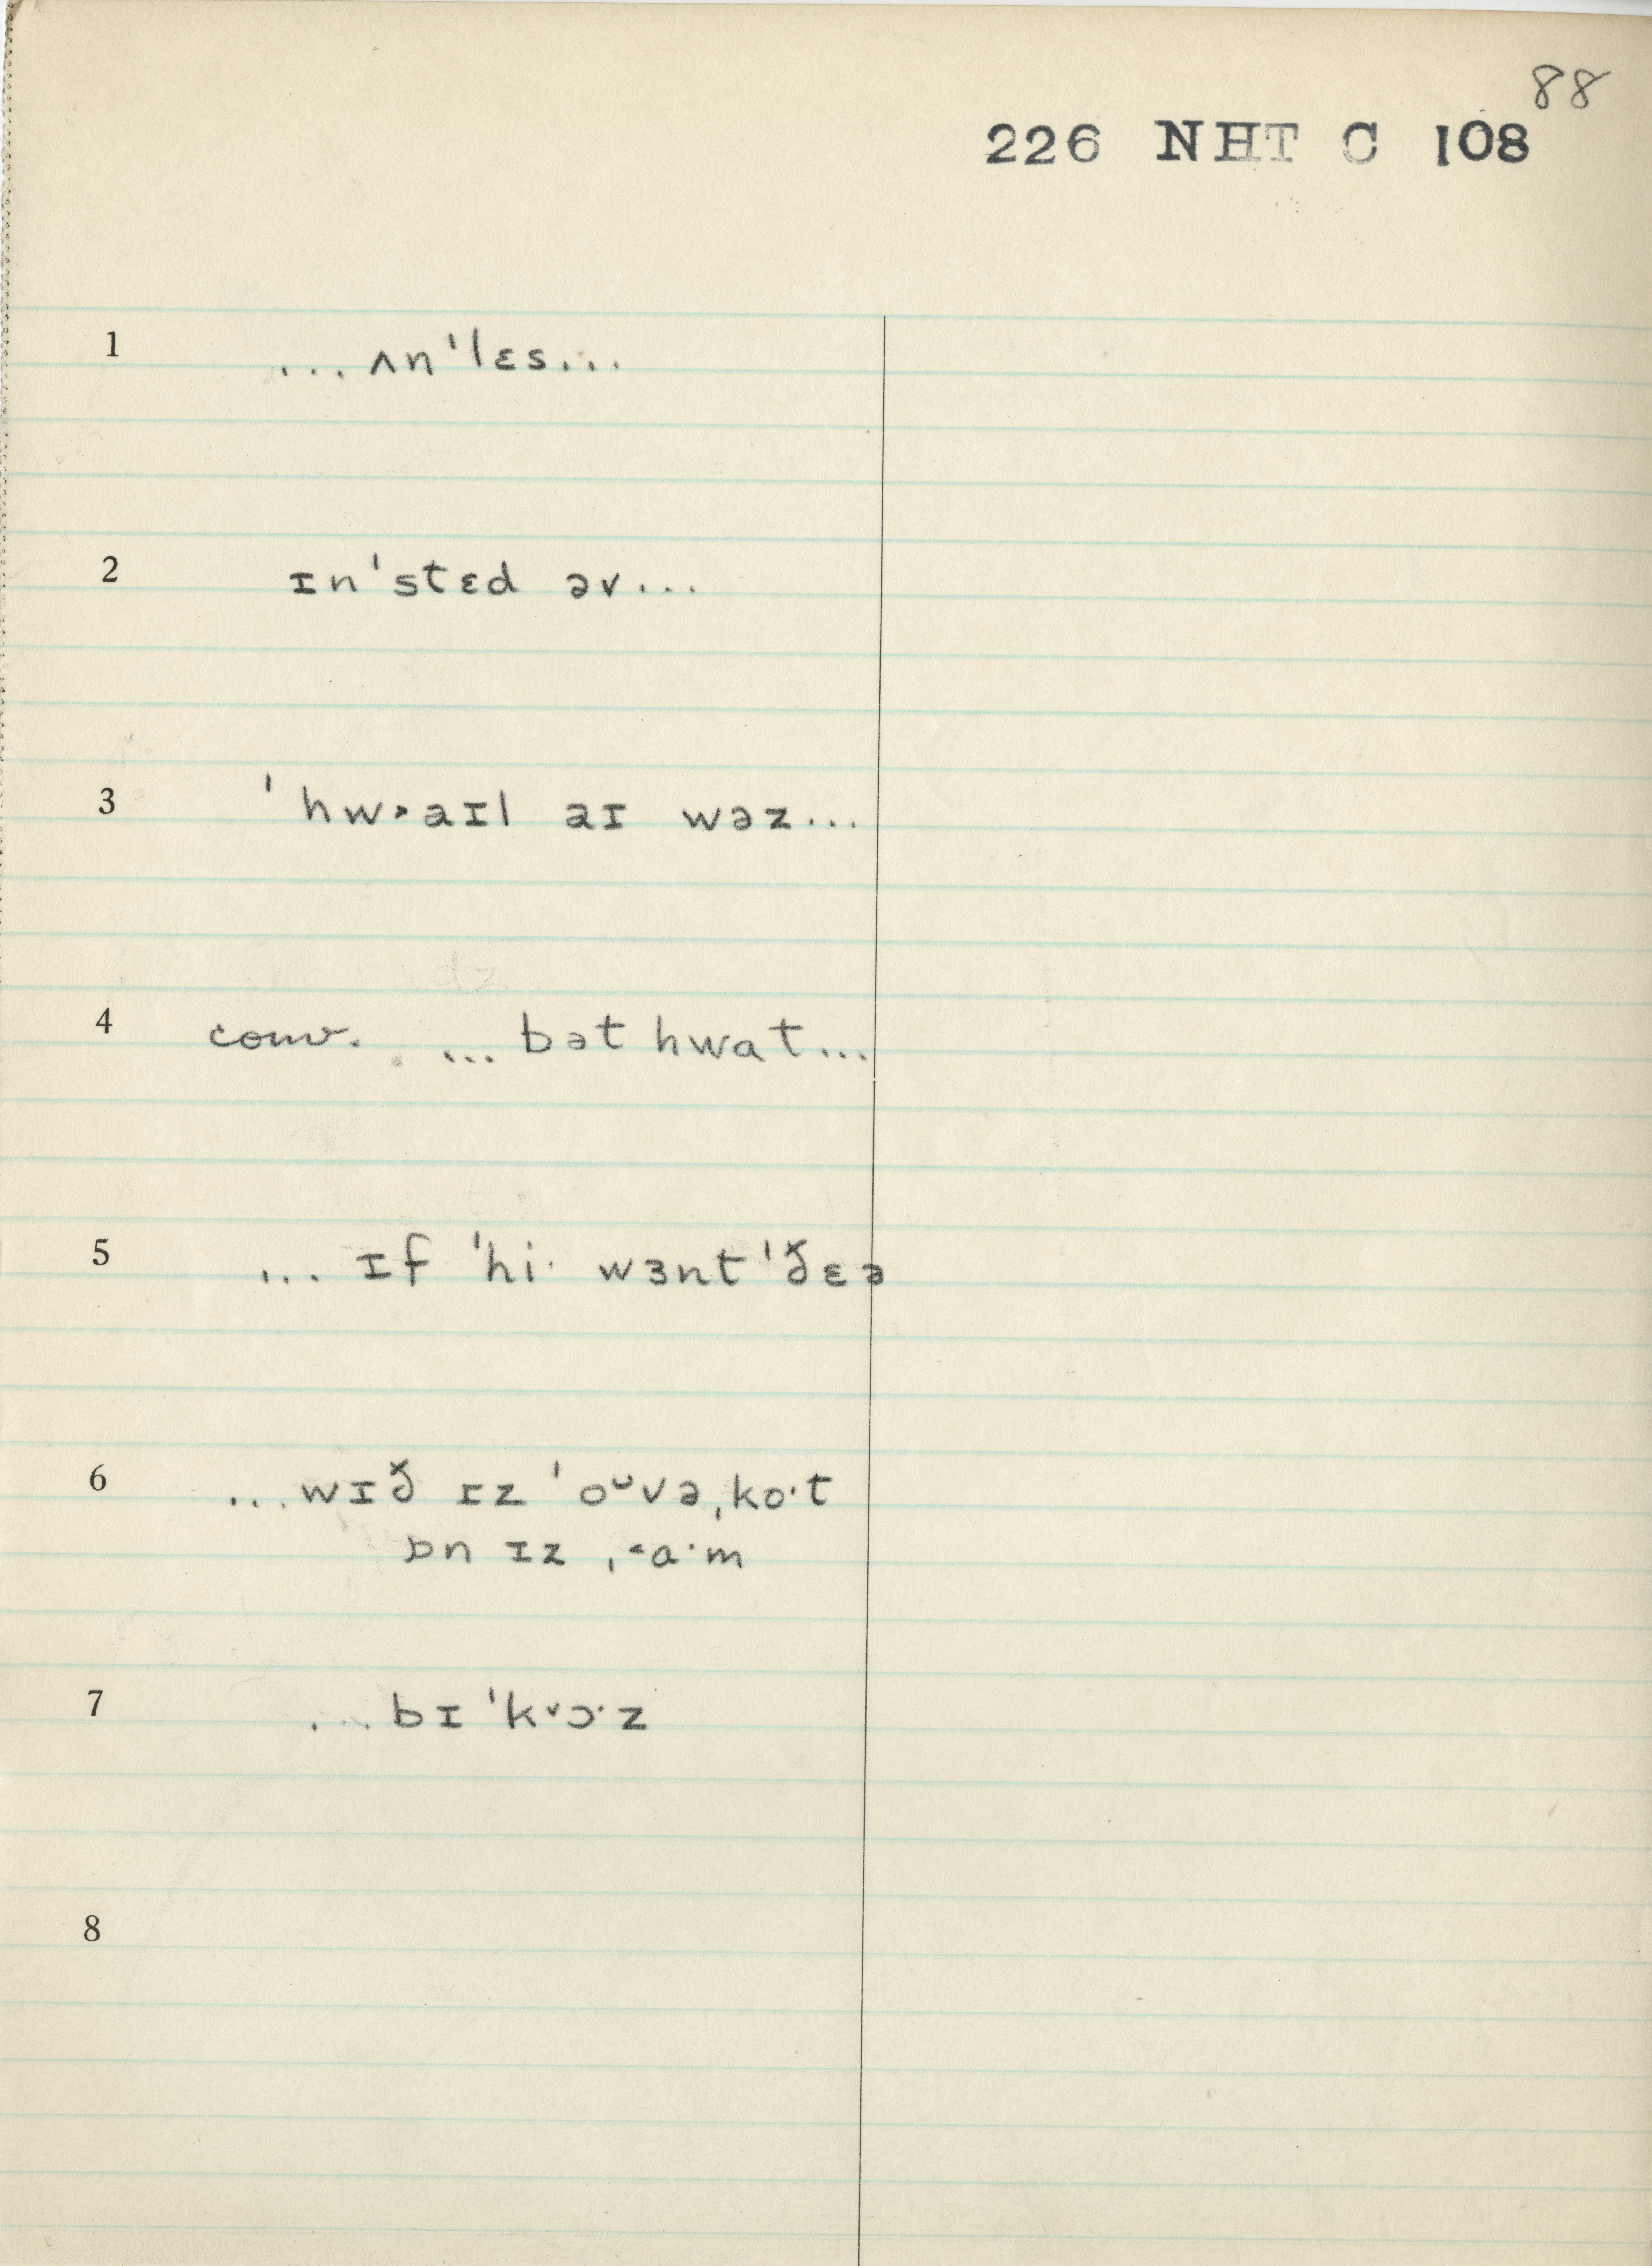 88
226 NHT C 108
1 ... ʌnˈlɛs...
2 ɪnˈstɛd əv...
3 ˈhw˃aɪl aɪ wəz...
4 conv. ... bət hwat...
5 ... ɪf ˈhi· wɜnt ˈðɛə
6 ...wɪð ɪz ˈoᴗvəˌko·t
ɒn ɪz ˌ˂a·m
7 ...bɪˈk˅ɔ·z
8